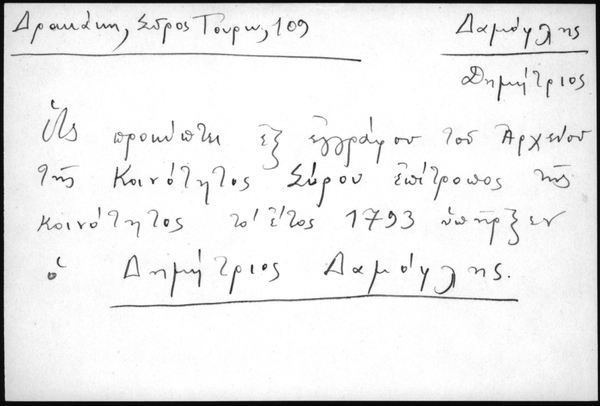 Δρακάκη, Σῦρος Τουρκ, 109
Δαμόγλης
Δημήτριος
Ὡς προκύπτει ἐξ ἐγγράφου τοῦ Ἀρχείου
τῆς Κοινότητος Σύρου ἐπίτροπος τῆς
κοινότητος τὸ ἔτος 1793 ὑπῆρξεν
ὁ Δημήτριος Δαμόγλης.